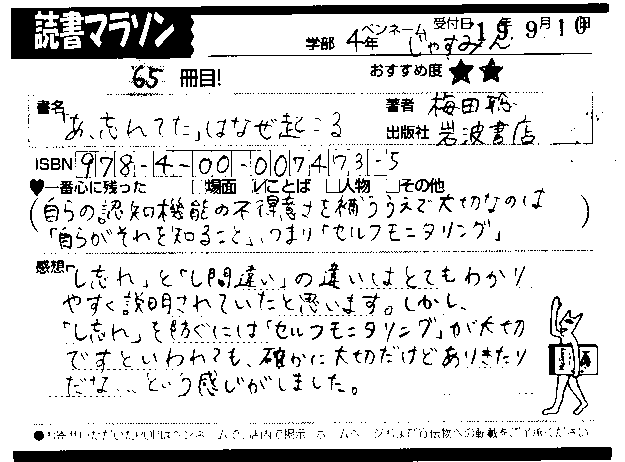 読書マラソン
学部 4年
ペンネーム じゃすみん
受付日 19年 9月10日
65 冊目!
おすすめ度 ★★
書名 「あ、忘れてた」はなぜ起こる
著者 梅田聡
出版社 岩波書店
ISBN 978-4-00-007473-5
♥一番心に残った □場面 ☑ことば □人物 □その他
(自らの認知機能の不得意さを補ううえで大切なのは
「自らがそれを知ること」、つまり「セルフモニタリング」)
感想 「し忘れ」と「し間違い」の違いはとてもわかり
やすく説明されていたと思います。しかし、
「し忘れ」を防ぐには「セルフモニタリング」が大切
ですといわれても、確かに大切だけどありきたり
だな…という感じがしました。